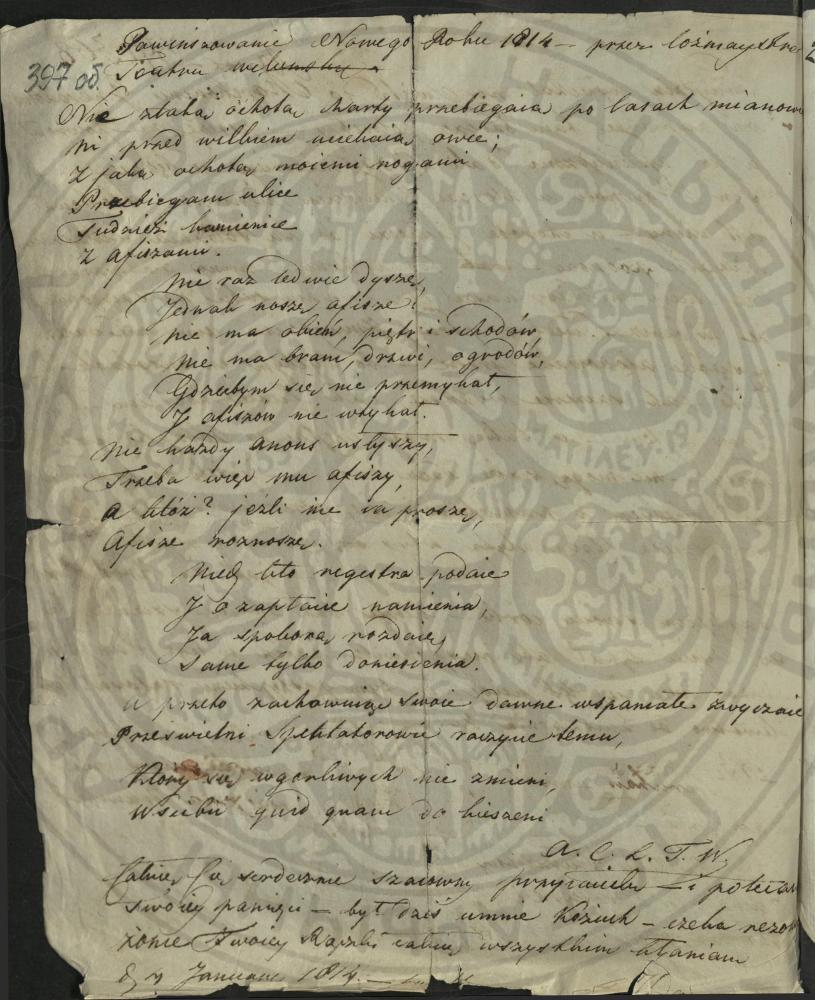 397 об.
Powinszowanie Nowego Roku 1814 – przez lożmaystra
Teatru wilensky
Nie z taką ochotą Charty przebiegaią po lasach
ni przed wilkiem uciekaią owce;
Z jaką ochotą moiemi nogami
Przebiegam ulice
Tudzież kamienice
z Afiszami.
Nie raz ledwie dyszę,
Jednak noszę afisze.
Nie ma okien, piętr i schodów
Nie ma bram, drzwi, ogrodów,
Gdziebym się nie przemykał,
J afiszów nie wtykał.
Nie każdy anons usłyszy,
Trzeba więc mu afiszy,
A któż? jeżli nie ia proszę,
Afisze roznoszę.
Niech kto regestra podaie
J o zapłacie namienia,
Ja spokorą rozdaię
same tylko doniesienia.
A przeto zachowuiąc swoie dawne wspaniałe zwyczaie
Prześwietni Spektatorowie raczycie temu,
Który się wgorliwych nie zmieni,
Wścibić quid quam do kieszeni
A. C. L. T. W.
Całuię Cię serdecznie szacowny przyiacielu – i
swoiey pamięci – był dziś umnie Kożuch – czeka
Twoiey Rączki całuię wszystkim kłaniam
d. Januar 1814.